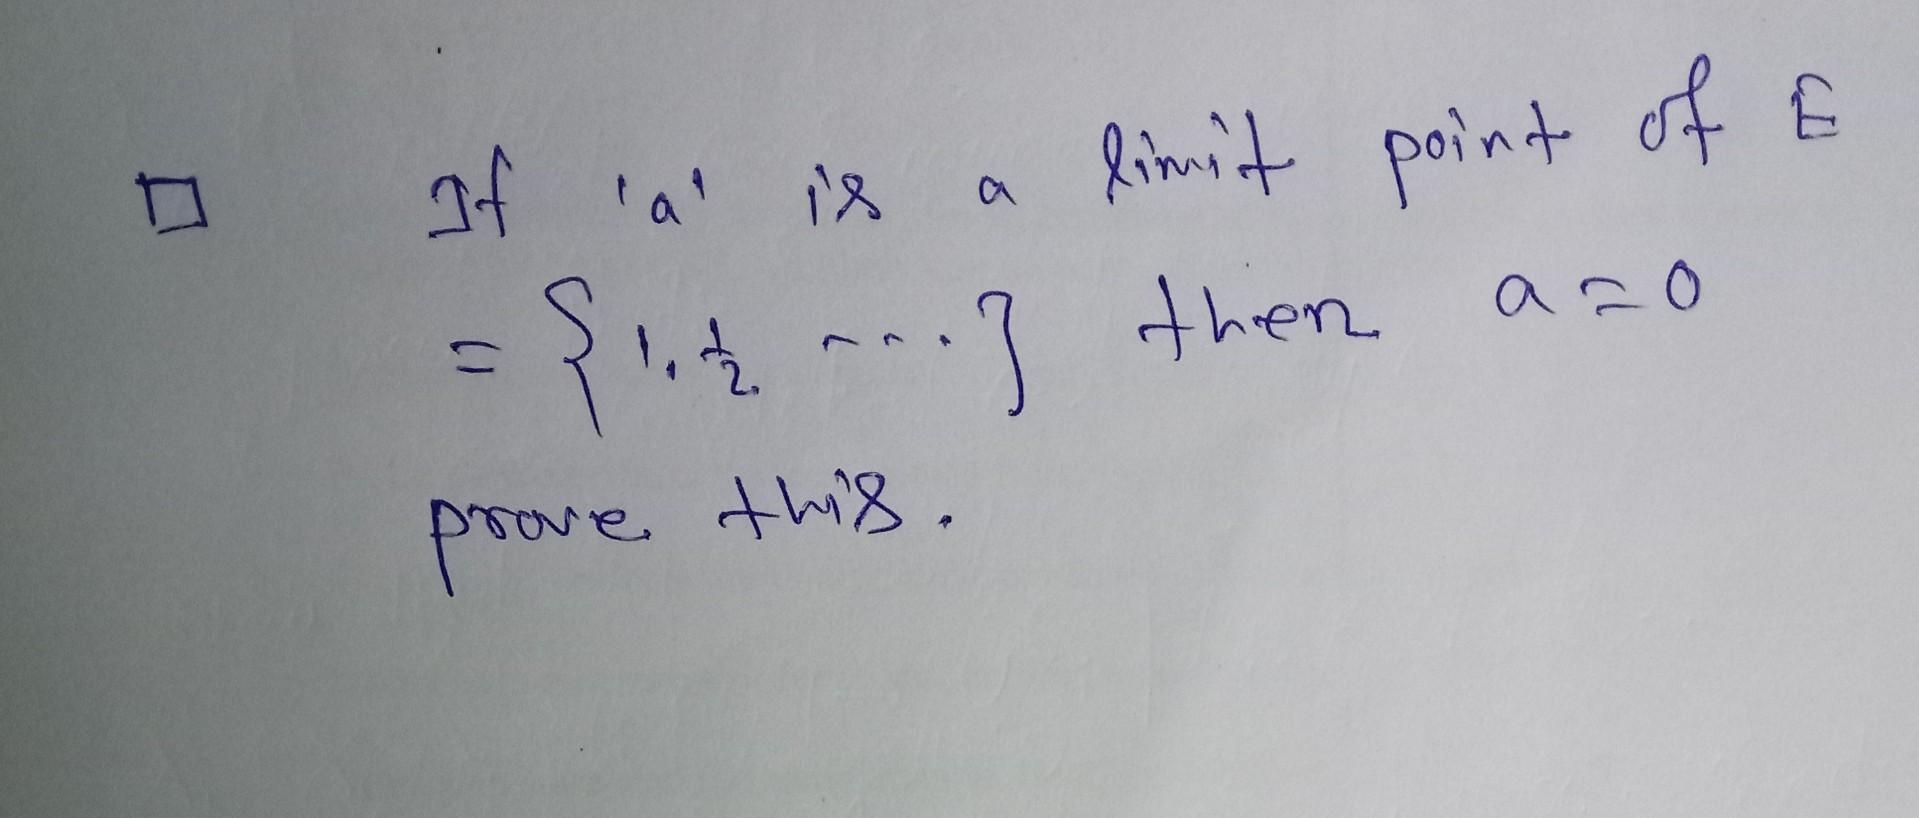 If 'a' is a limit point of E
= {1, 1/2 ....} then a = 0
prove this.